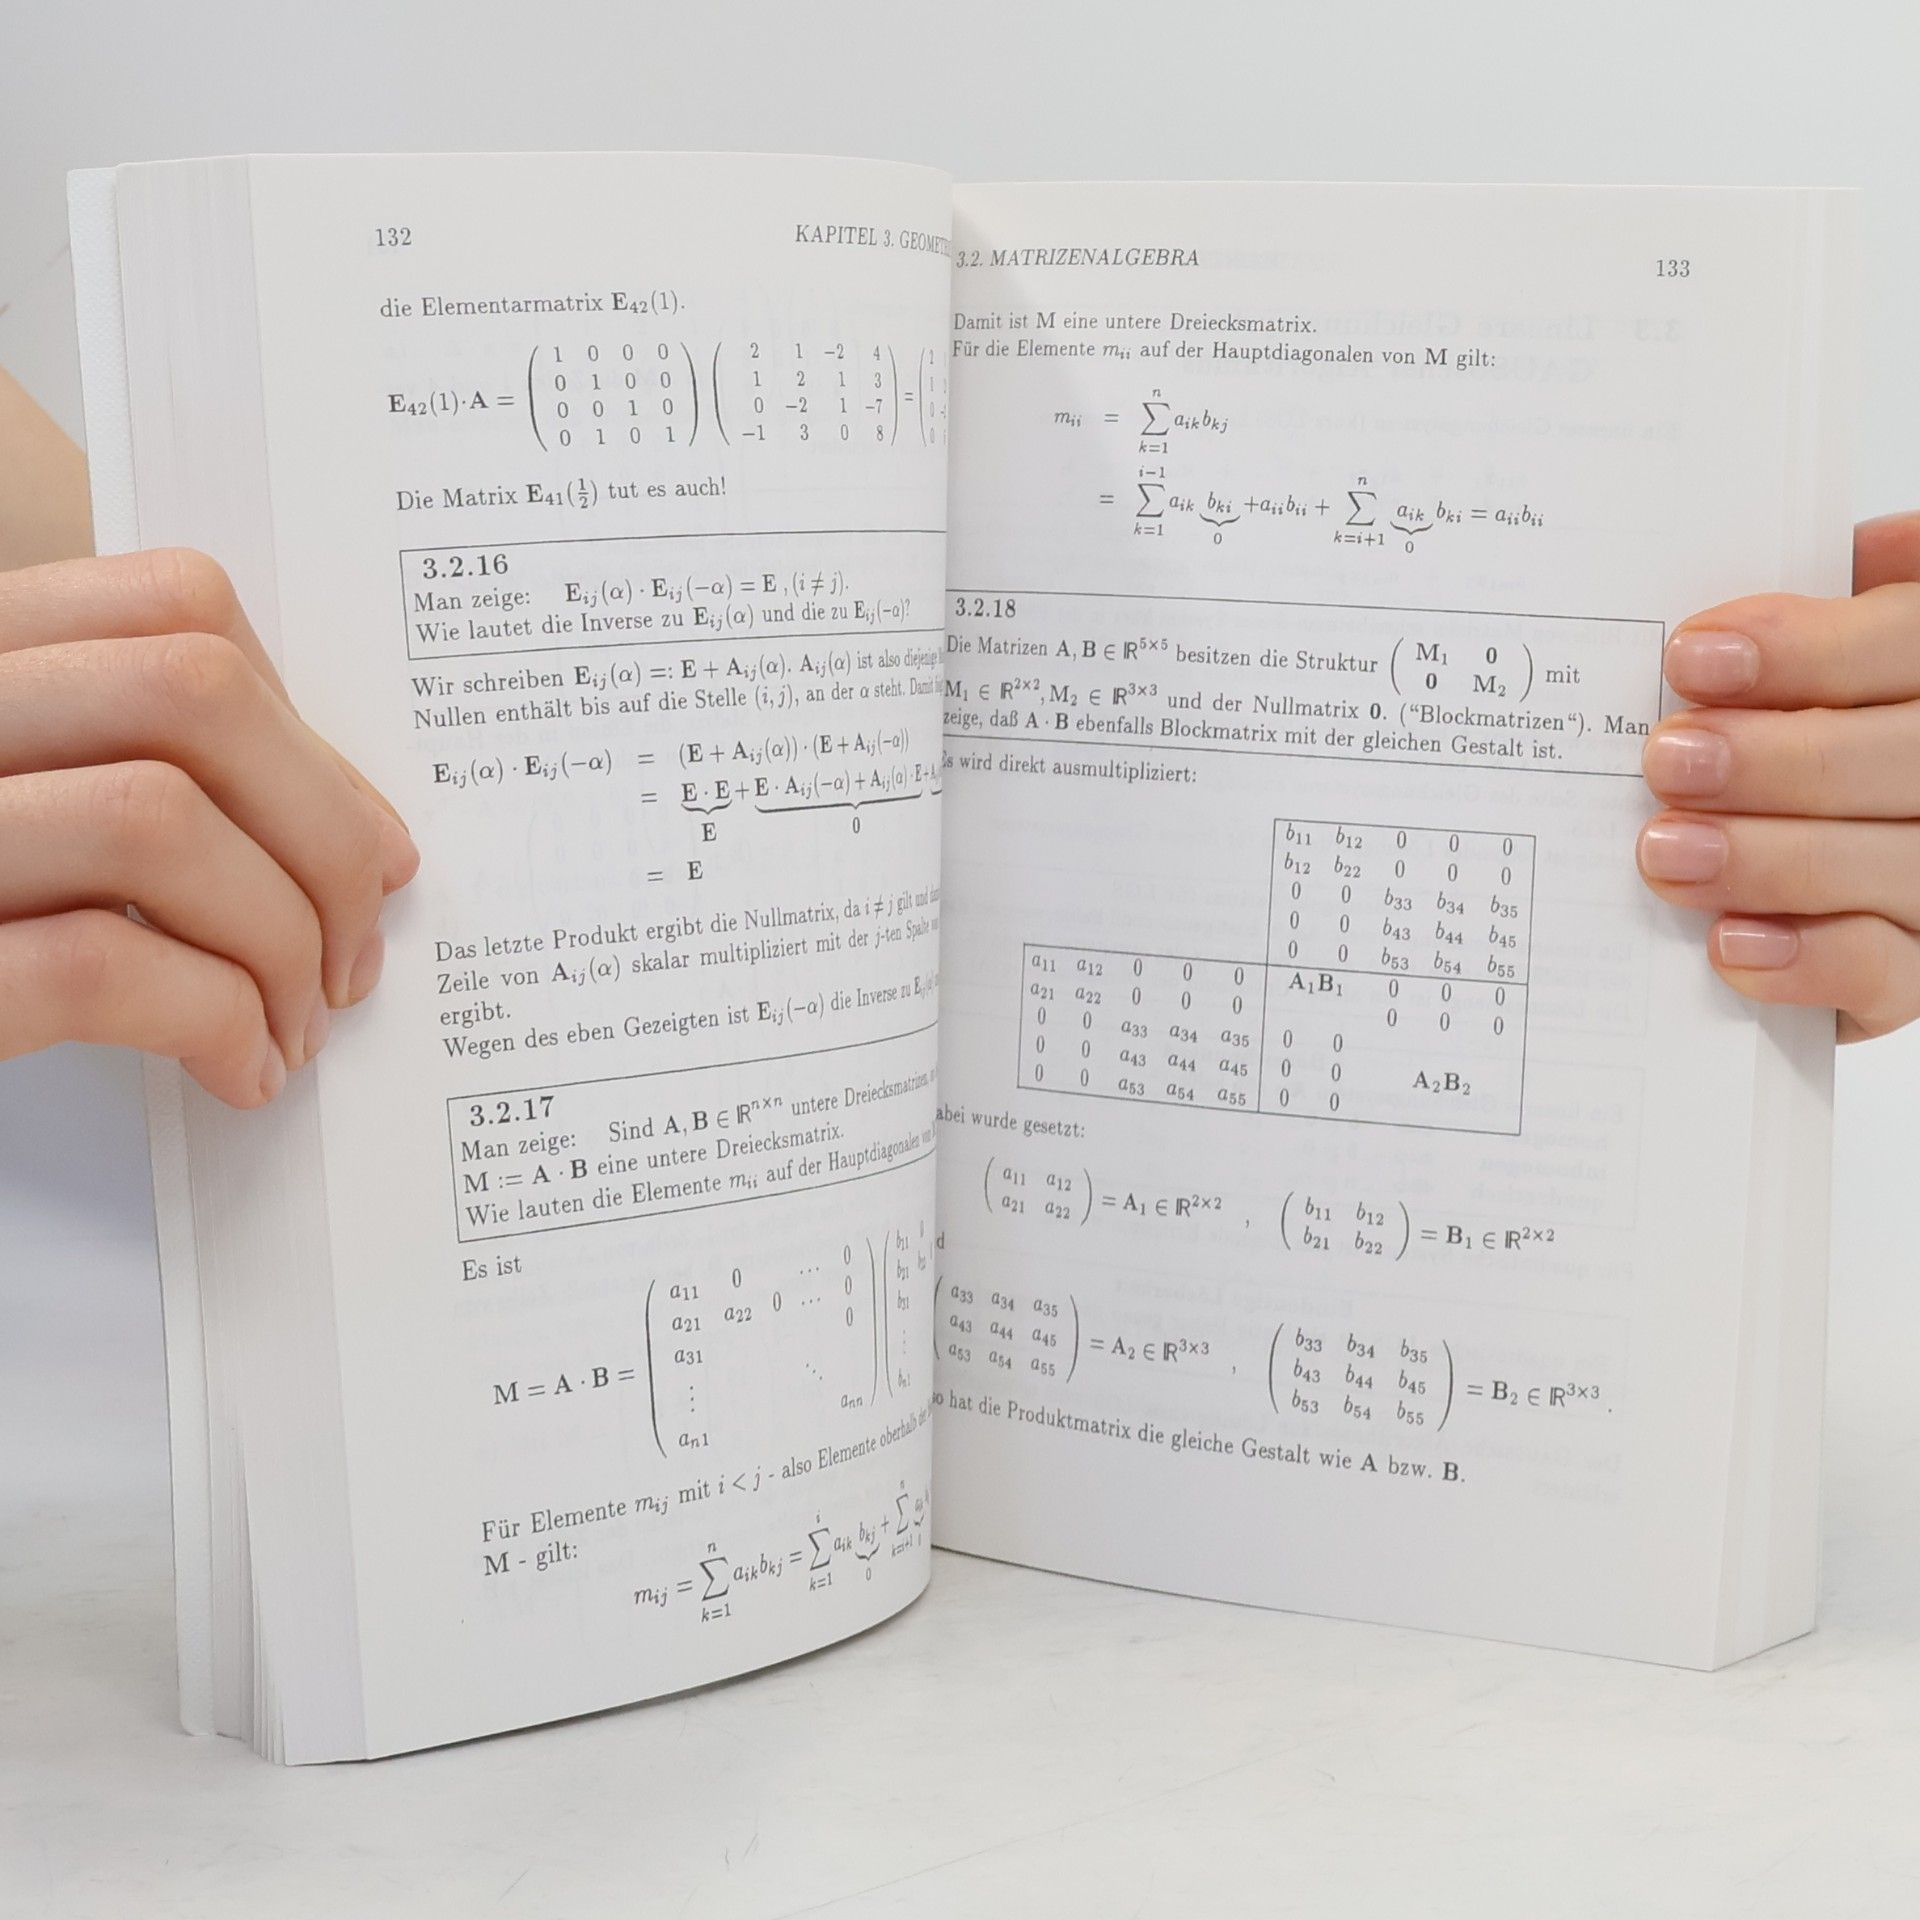 132
KAPITEL 3.
die Elementarmatrix E₄₂(1).
E₄₂(1)·A = ( 1 0 0 0 ) ( 2 1 −2 4 ) = ( 2
0 1 0 0 1 2 1 3 1
0 0 1 0 0 −2 1 −7 0
0 1 0 1 −1 3 0 8 0
Die Matrix E₄₁(½) tut es auch!
3.2.16
Man zeige: Eᵢⱼ(α) · Eᵢⱼ(−α) = E , (i ≠ j).
Wie lautet die Inverse zu Eᵢⱼ(α) und die zu Eᵢⱼ(−α)?
Wir schreiben Eᵢⱼ(α) =: E + Aᵢⱼ(α). Aᵢⱼ(α) ist also diejenige
Nullen enthält bis auf die Stelle (i, j), an der α steht. Damit
Eᵢⱼ(α) · Eᵢⱼ(−α) = (E + Aᵢⱼ(α)) · (E + Aᵢⱼ(−α))
= E · E + E · Aᵢⱼ(−α) + Aᵢⱼ(α) · E +
E 0
= E
Das letzte Produkt ergibt die Nullmatrix, da i ≠ j gilt und
Zeile von Aᵢⱼ(α) skalar multipliziert mit der j-ten Spalte
ergibt.
Wegen des eben Gezeigten ist Eᵢⱼ(−α) die Inverse zu
3.2.17
Man zeige: Sind A, B ∈ ℝⁿˣⁿ untere Dreiecksmatrizen,
M := A · B eine untere Dreiecksmatrix.
Wie lauten die Elemente mᵢᵢ auf der Hauptdiagonalen
Es ist
M = A · B = ( a₁₁ 0 ⋯ 0 ) ( b₁₁ 0
a₂₁ a₂₂ 0 ⋯ 0 b₂₁
a₃₁ 0 b₃₁
⋮ ⋱ ⋮
aₙ₁ aₙₙ bₙ₁
Für Elemente mᵢⱼ mit i < j - also Elemente oberhalb
M - gilt:
mᵢⱼ = ∑ₖ₌₁ⁿ aᵢₖbₖⱼ = ∑ₖ₌₁ⁱ aᵢₖ bₖⱼ + ∑ₖ₌ᵢ₊₁ⁿ
0 0
3.2. MATRIZENALGEBRA
133
Damit ist M eine untere Dreiecksmatrix.
Für die Elemente mᵢᵢ auf der Hauptdiagonalen von M gilt:
mᵢᵢ = ∑ₖ₌₁ⁿ aᵢₖbₖⱼ
= ∑ₖ₌₁ⁱ⁻¹ aᵢₖ bₖᵢ +aᵢᵢbᵢᵢ + ∑ₖ₌ᵢ₊₁ⁿ aᵢₖ bₖᵢ = aᵢᵢbᵢᵢ
0 0
3.2.18
Die Matrizen A, B ∈ ℝ⁵ˣ⁵ besitzen die Struktur ( M₁ 0 ) mit
0 M₂
M₁ ∈ ℝ²ˣ², M₂ ∈ ℝ³ˣ³ und der Nullmatrix 0. (“Blockmatrizen“). Man
zeige, daß A · B ebenfalls Blockmatrix mit der gleichen Gestalt ist.
s wird direkt ausmultipliziert:
b₁₁ b₁₂ 0 0 0
b₁₂ b₂₂ 0 0 0
0 0 b₃₃ b₃₄ b₃₅
0 0 b₄₃ b₄₄ b₄₅
0 0 b₅₃ b₅₄ b₅₅
a₁₁ a₁₂ 0 0 0 A₁B₁ 0 0 0
a₂₁ a₂₂ 0 0 0 0 0 0
0 0 a₃₃ a₃₄ a₃₅ 0 0
0 0 a₄₃ a₄₄ a₄₅ 0 0 A₂B₂
0 0 a₅₃ a₅₄ a₅₅ 0 0
abei wurde gesetzt:
( a₁₁ a₁₂ ) = A₁ ∈ ℝ²ˣ² , ( b₁₁ b₁₂ ) = B₁ ∈ ℝ²ˣ²
a₂₁ a₂₂ b₂₁ b₂₂
d
( a₃₃ a₃₄ a₃₅ ) = A₂ ∈ ℝ³ˣ³ , ( b₃₃ b₃₄ b₃₅ ) = B₂ ∈ ℝ³ˣ³ .
a₄₃ a₄₄ a₄₅ b₄₃ b₄₄ b₄₅
a₅₃ a₅₄ a₅₅ b₅₃ b₅₄ b₅₅
so hat die Produktmatrix die gleiche Gestalt wie A bzw. B.